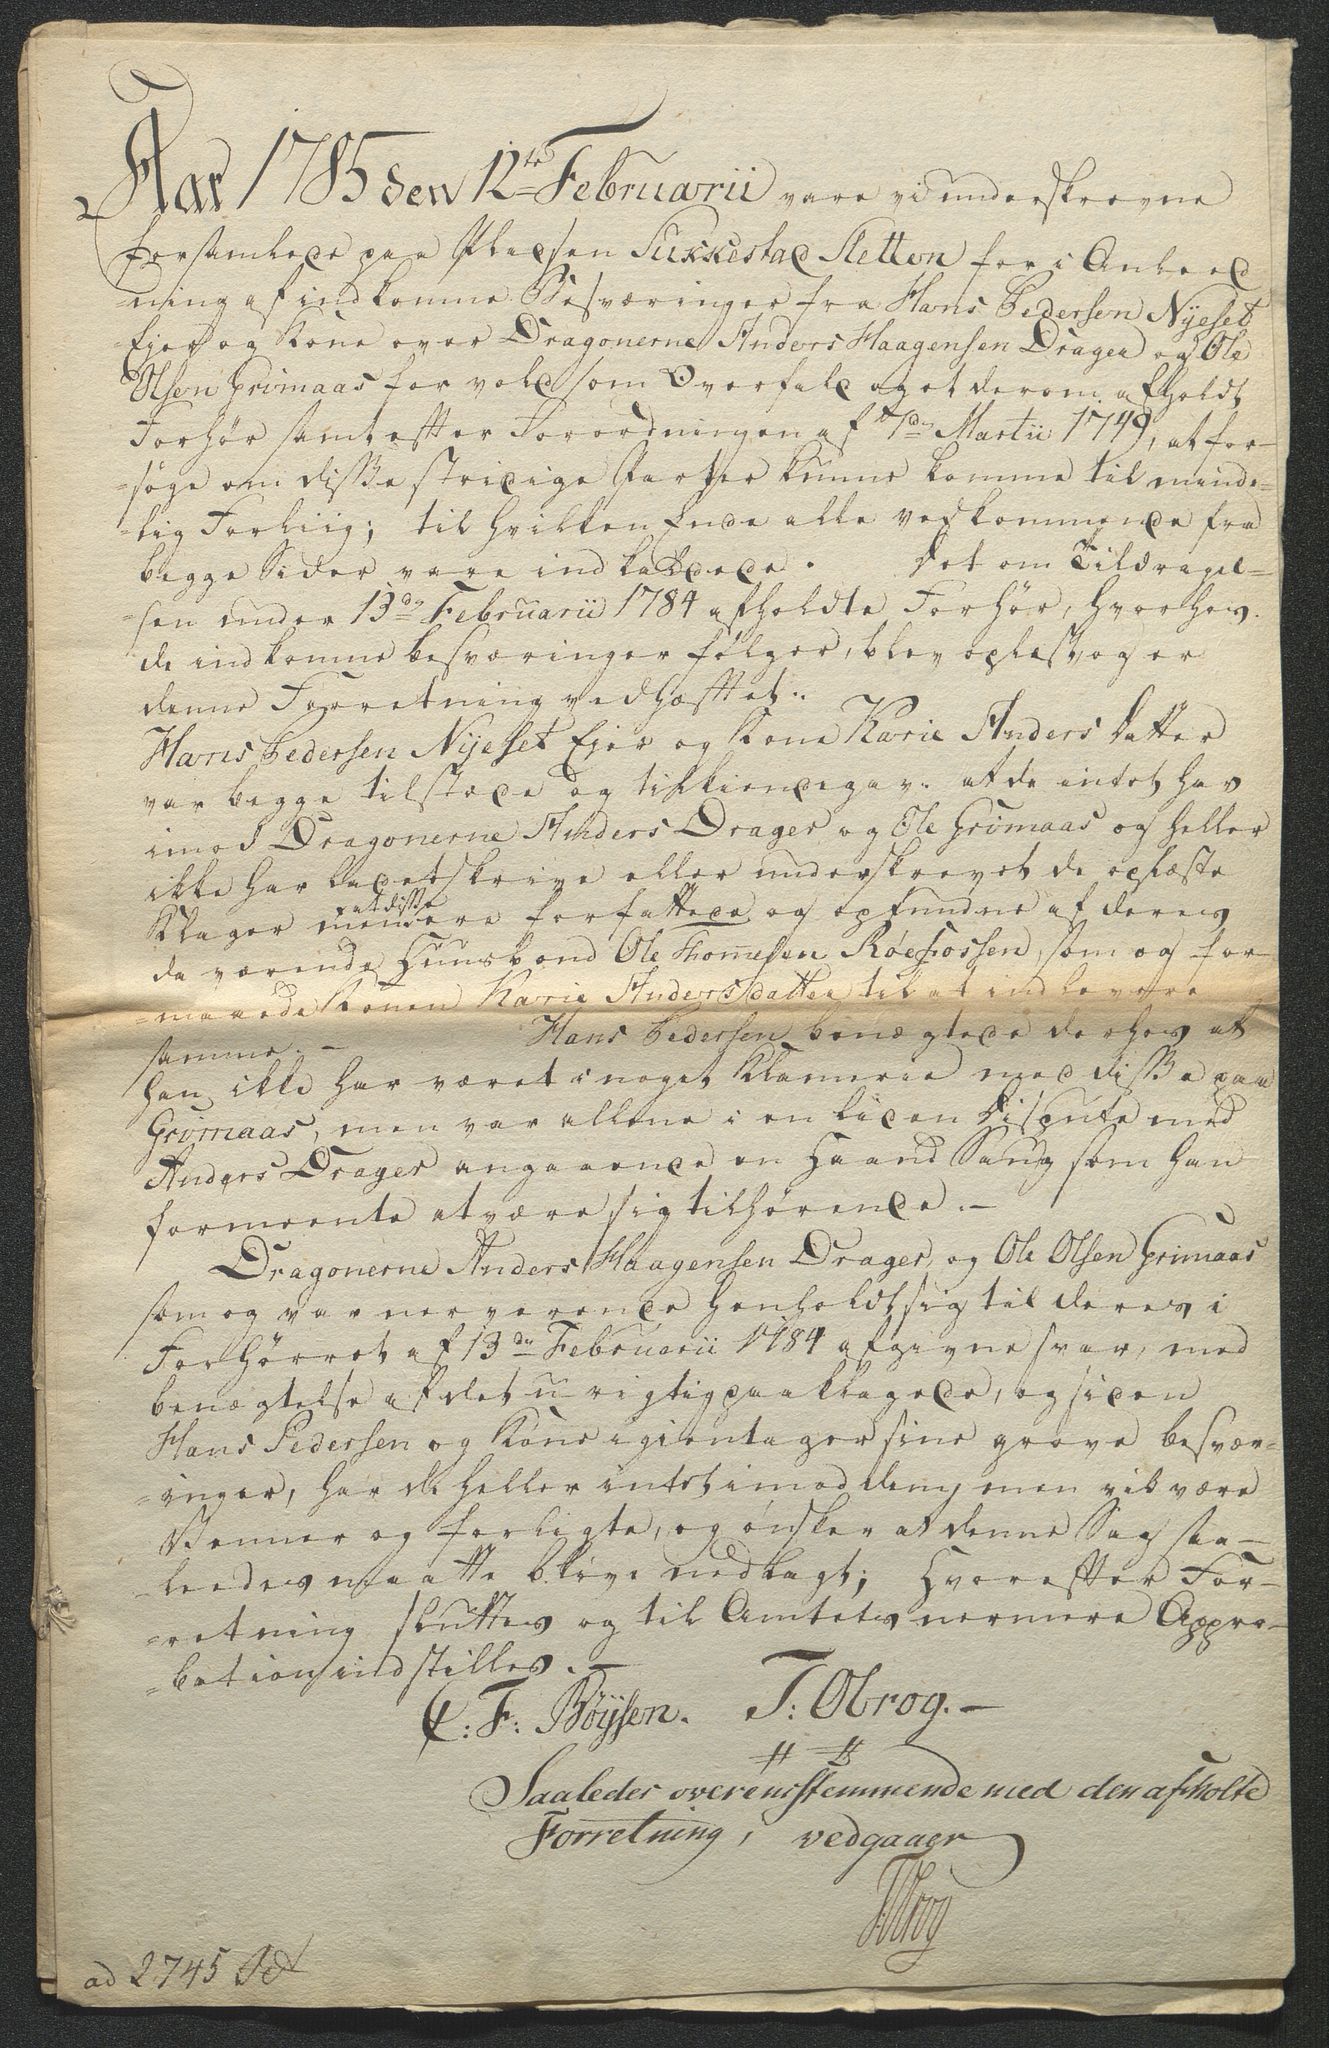 Aar 1785 den 12te Februarii vare vi underskrevne
forsamlede paa Pladsen Sukkestad Sletten for i Anleed
-ning af indkomne Besværinger fra Hans Pedersen Nyeset
Ejer og Kone over Dragonerne Anders Haagensen Drager og Ole
Olsen Grimaas for vold som Overfald og et derom afholdt
Forhør samt efter Forordningen af 7de Martii 1749, at for-
-søge om disse stridige Parter kunne komme til minde-
-lig Forliig; til hvilken Ende alle vedkommende fra
begge Sider vare indkaldede. Det om Tildragel-
-sen under 13de Februarii 1784 afholdte Forhør, hvorhos
de indkomne besværinger følger, blev oplæst og er
denne Forretning vedhæftet.
Hans Pedersen Nyeset Ejer og Kone Karie Anders Datter
var begge tilstæde og tilkiendegav: at de intet har
imod Dragonerne Anders Drager og Ole Grimaas og heller
ikke har ladet skrive eller underskrevet de oplæste
Klager men at disse ere forfattede og opfundne af deres
da værende Huusbond Ole Thomesen Røefossen, som og for-
-maaede Konen Karie Andersdatter til at indlevere
samme. - Hans Pedersen benægtede derhos at
han ikke har været i noget Klammerie med disse paa
Grimaas, men var allene i en liden Dispute med
Anders Drager angaaende en Haand Saug som han
formeente at være sig tilhørende. -
Dragonerne Anders Haagensen Drager, og Ole Olsen Grimaas
som og var nerverende henholdt sig til deres i
Forhørret af 13de Februarii 1784 afgivne svar, med
benægtelse af det urigtig paaklagede, og siden
Hans Pedersen og Kone igientager sine grove besvær-
-inger, har de heller intet imod dem, men vil være
Venner og forligte, og ønsker at denne Sag saa-
-leedes maatte blive nedlagt; Hvorefter For-
-retning sluttes og til Amtets nermere Appro-
-bation indstilles. -
C: F: Böysen. T: Obrog. -
Saaledes overensstemmende med den afholte
Forretning, vedgaaer
ad 2745